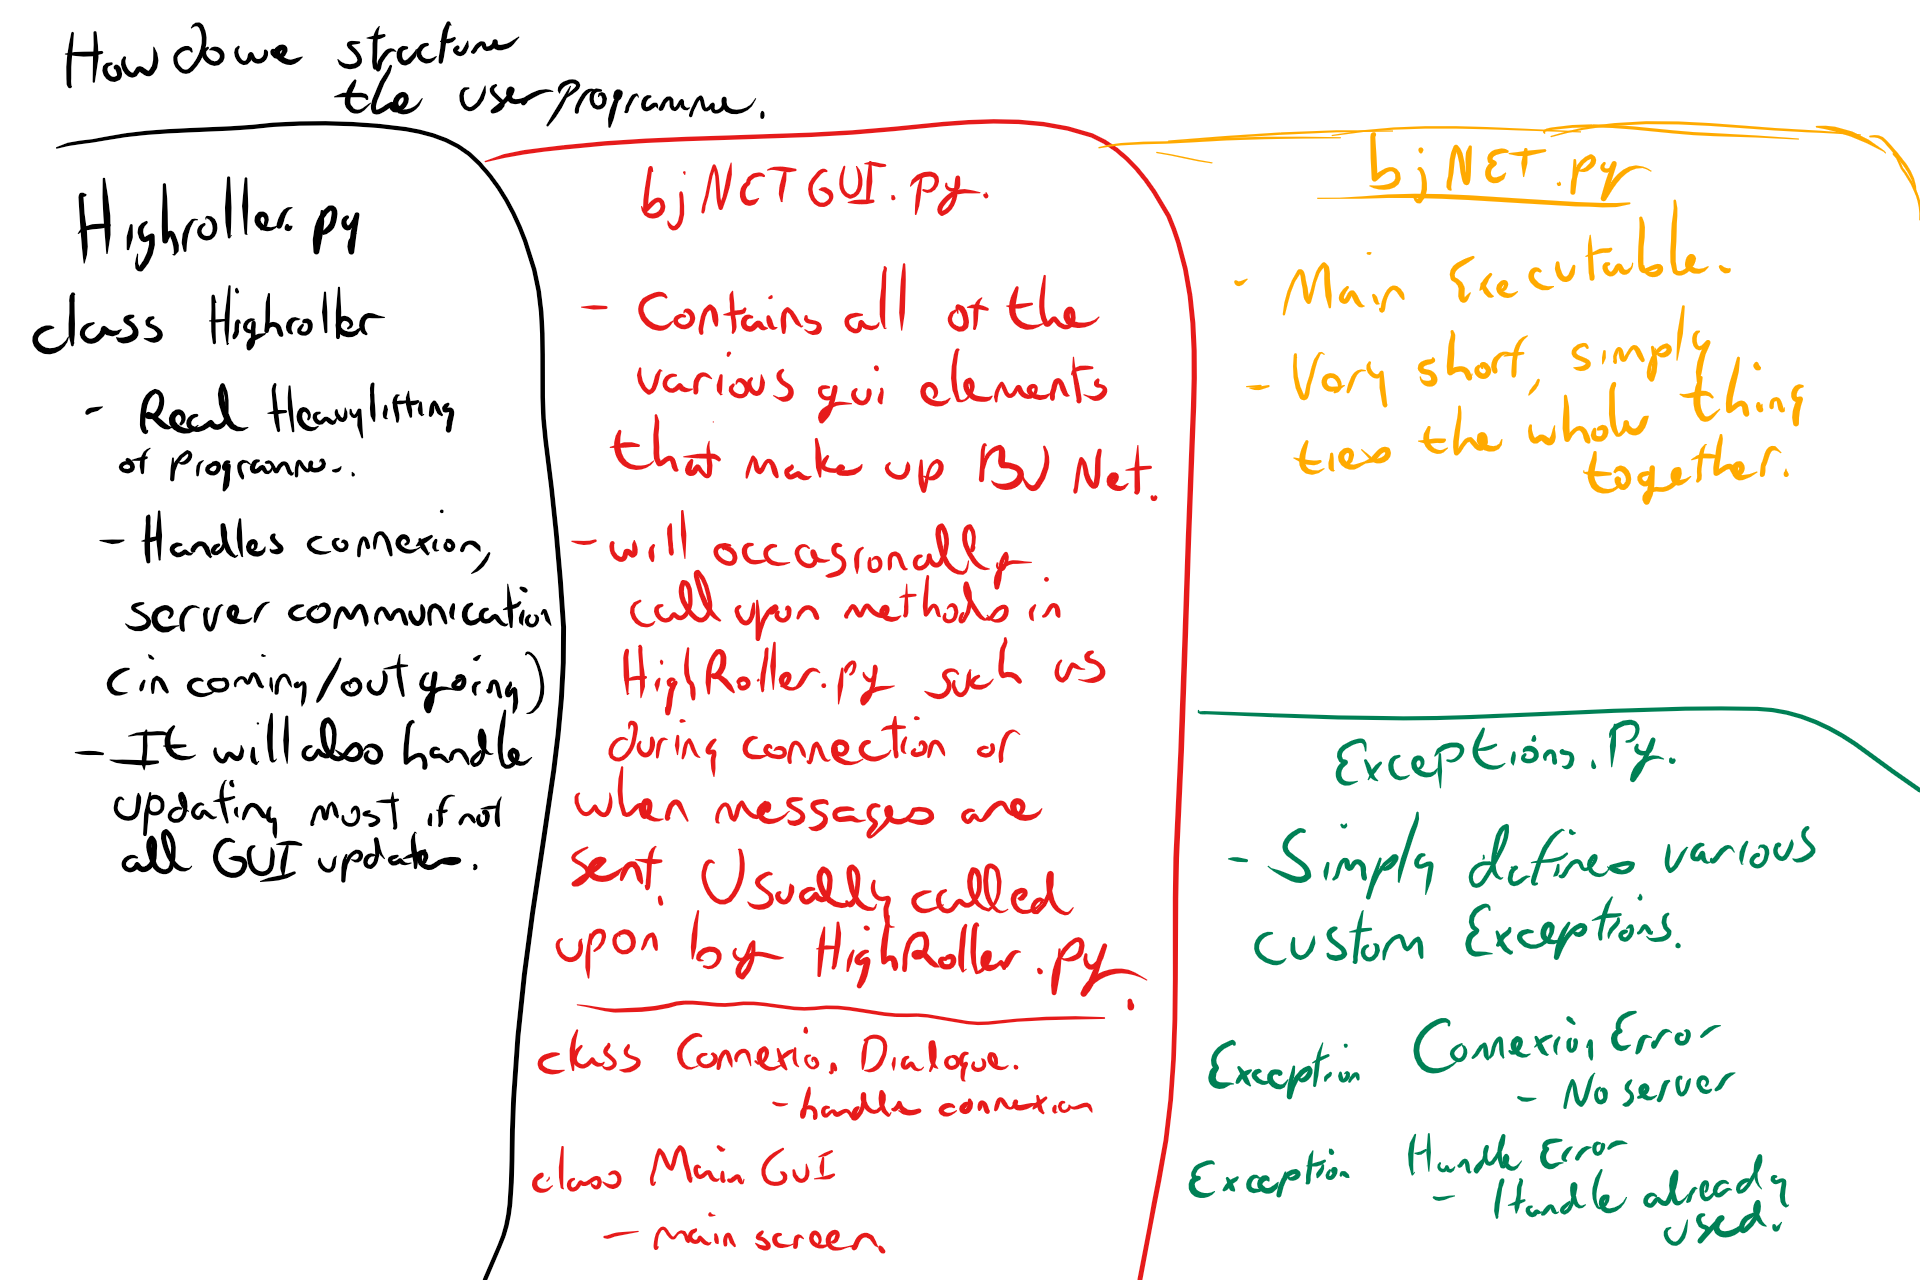 How do we structure
the user programme.
Highroller.py
class Highroller
- Real Heavylifting
of Programme.
- Handles connexion,
server communication
(incoming/outgoing)
- It will also handle
updating most if not
all GUI updates.
bjNETGUI.py.
- Contains all of the
various gui elements
that make up BJ Net.
- will occasionally
call upon methods in
HighRoller.py such as
during connection or
when messages are
sent. Usually called
upon by HighRoller.py.
class Connexion Dialogue.
- handle connexion
class Main GUI
- main screen.
bjNET.py
- Main Executable.
- Very short, simply
ties the whole thing
together.
Exceptions.Py.
- Simply defines various
custom Exceptions.
Exception Connexion Error
- No server
Exception Handle Error
- Handle already
used.